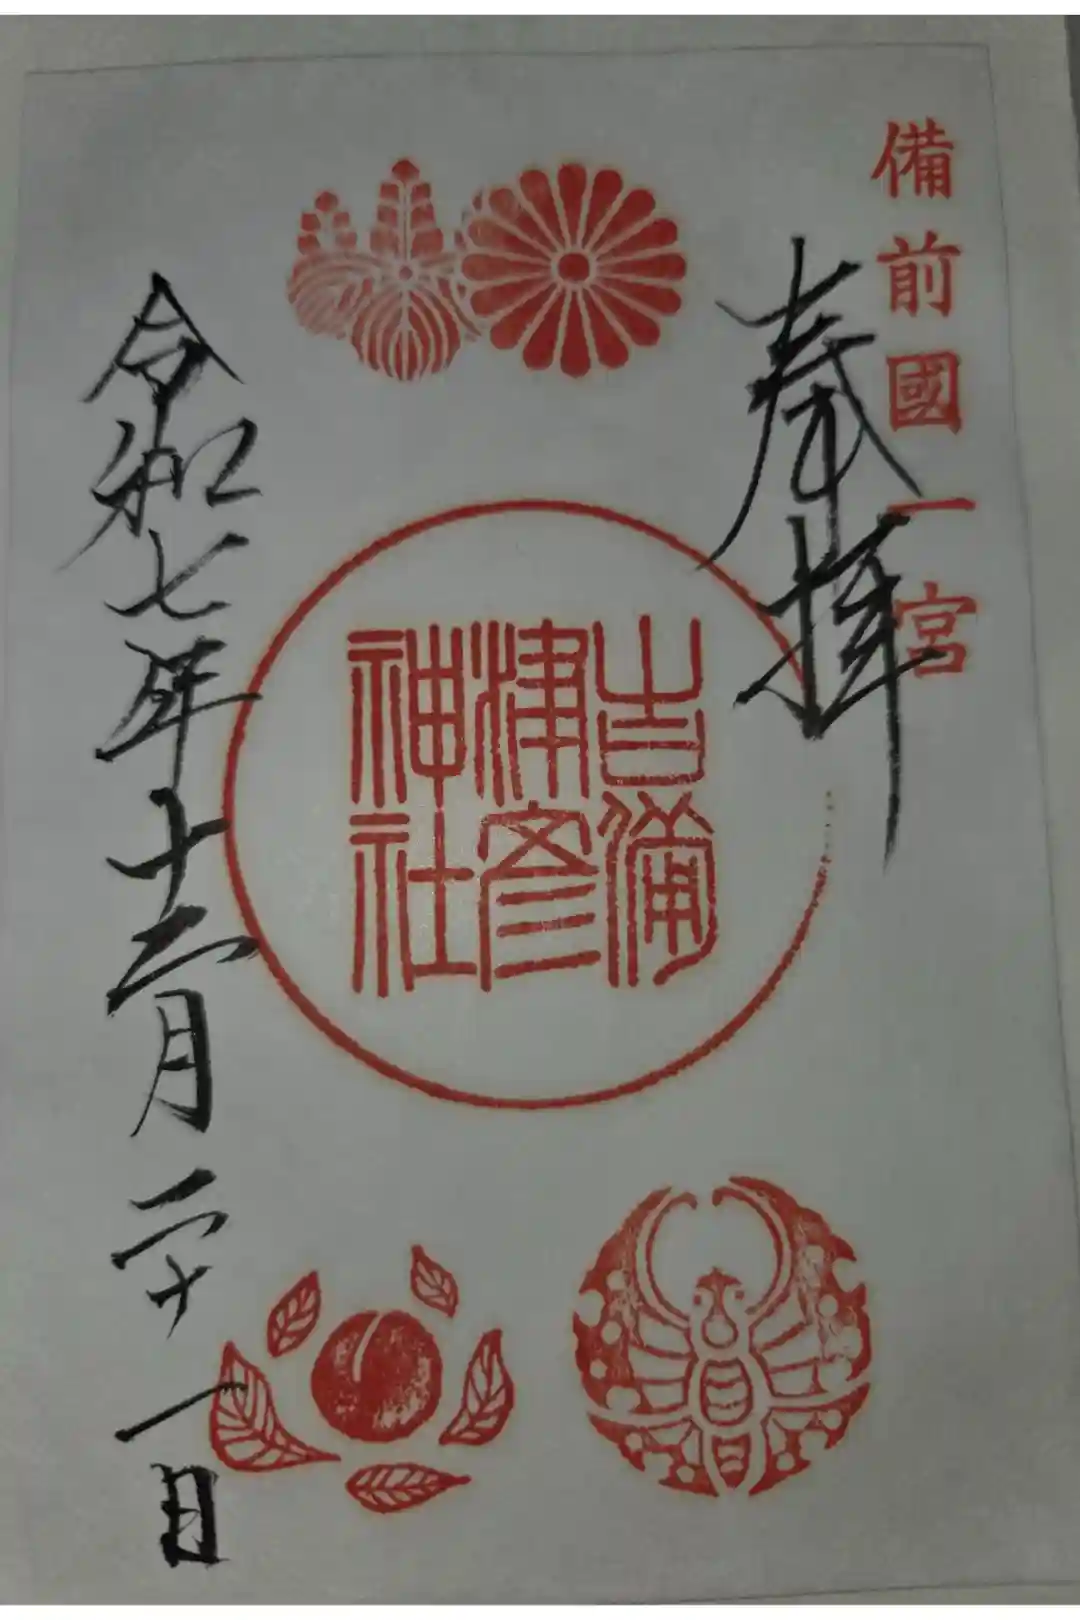 備前國一宮
奉拝
吉備
津彦
神社
令和七年十二月二十一日